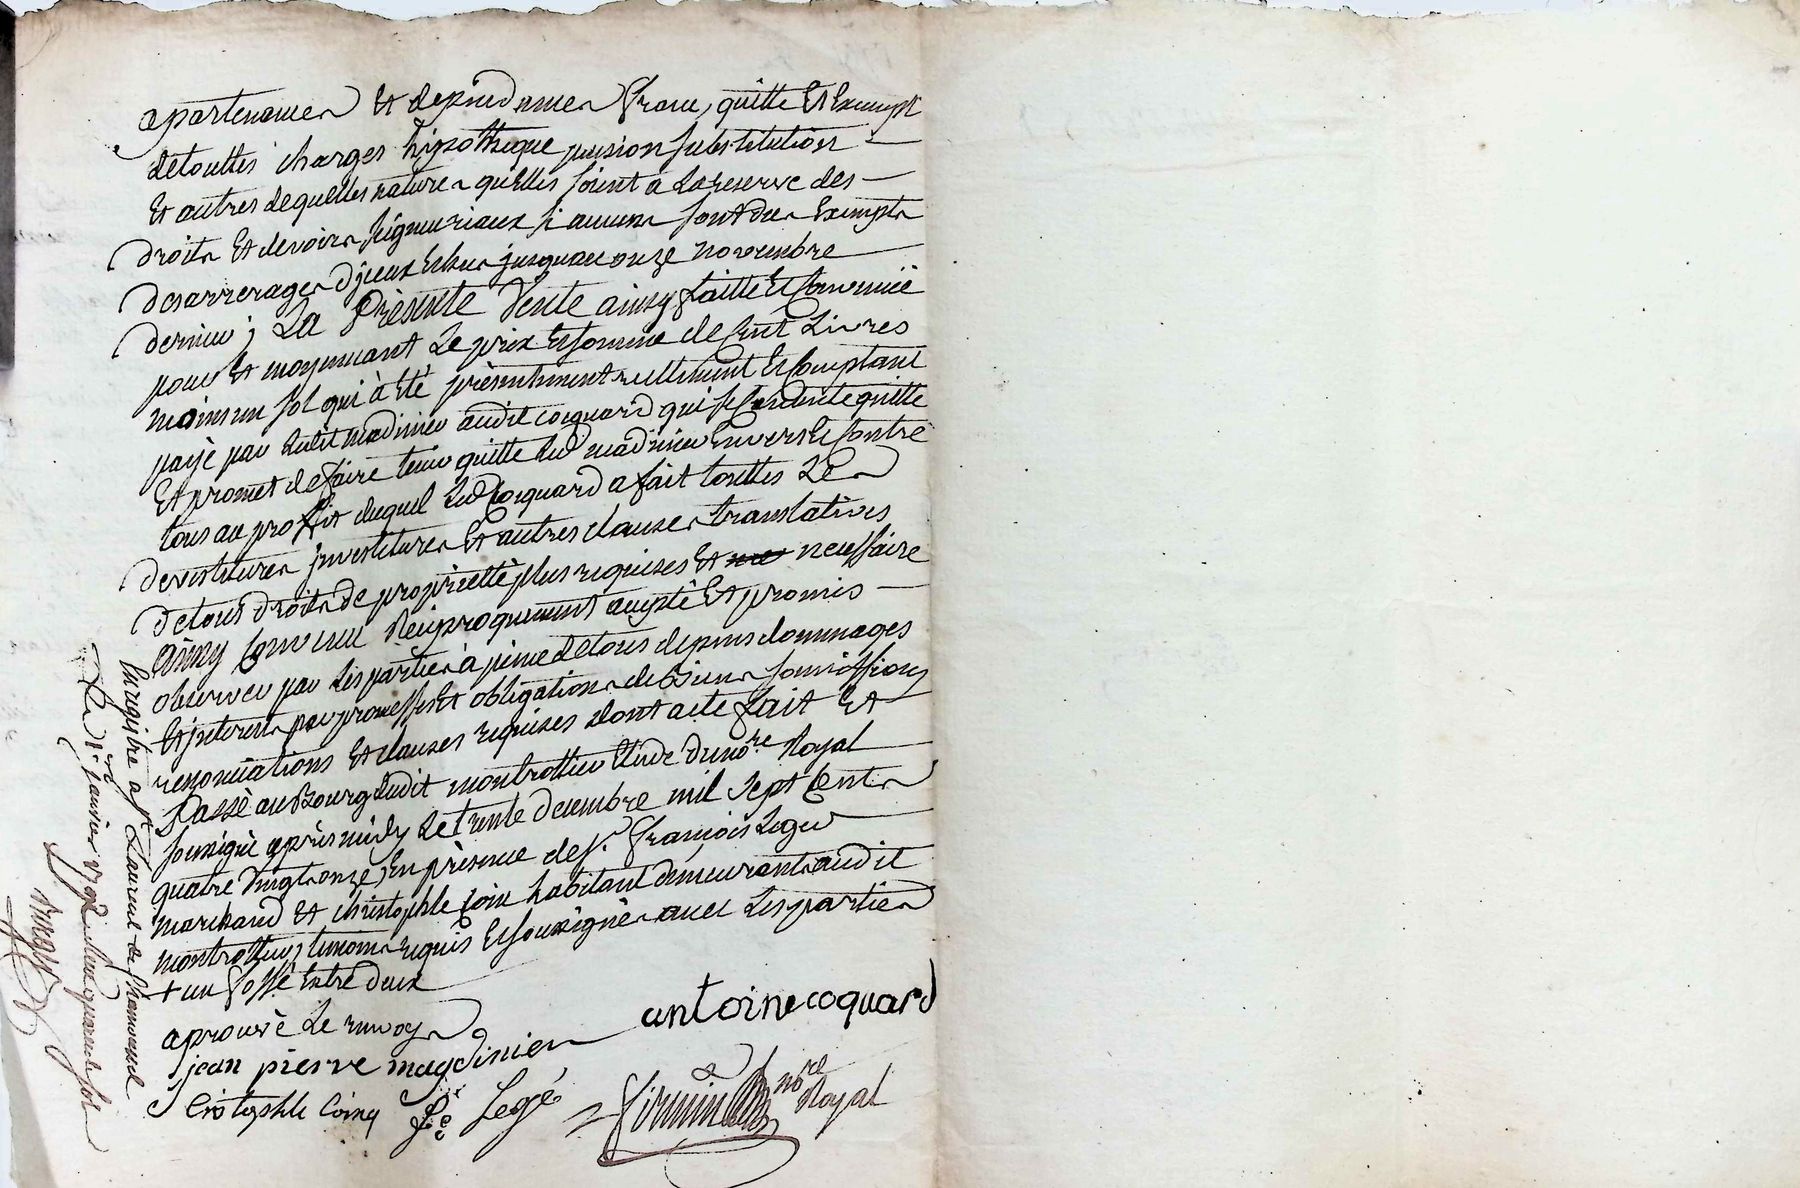 apartenances Et dependances franc, quitte Et Exempt
detouttes charges hipotheque pension substitution
Et autres dequelles natures quelles soient a La reserve des
droits Et devoirs seigneuriaux si aucuns sont dus Exempts
desarrerages djceux Echus jusquau onze novembre
dernier; La Presente Vente ainsy faitte Et Convenüe
pour Et moyennant Le prix Et somme de Cent Livres
moins un sol qui à Eté presentement reellement Et Comptant
payé par Ledit madinier audit coquard qui se Contente quitte
Et promet de faire tenir quitte Led madinier Envers Et Contre
tous au proffit duquel Led Coquard a fait touttes Les
devestitures jnvestitures Et autres clauses translatives
detous droits de proprietté plus requises Et neccessaire
Ainsy Convenu Reciproquement accepté Et promis
observer par Les parties à peine de tous depens dommages
Et jnterests par promesses Et obligations de biens soumissions
renonciations Et clauses requises dont acte fait Et
Passé au Bourg dudit montrottier Etude du no.re Royal
soussigné après midy Le trente decembre mil sept Cents
quatre Vingt onze, En présence de s.r François Leger
marchand Et christophle Coin habitant demeurants audit
montrottier, temoins requis Et soussignés avec Les parties
+ un fossé Entre deux
aprouvé Le renvoy
jean pierre magdinier
antoine coquard
Cristophle Coing
Legé
no.re Royal
Enregistré a S.t Laurent de Chamousset